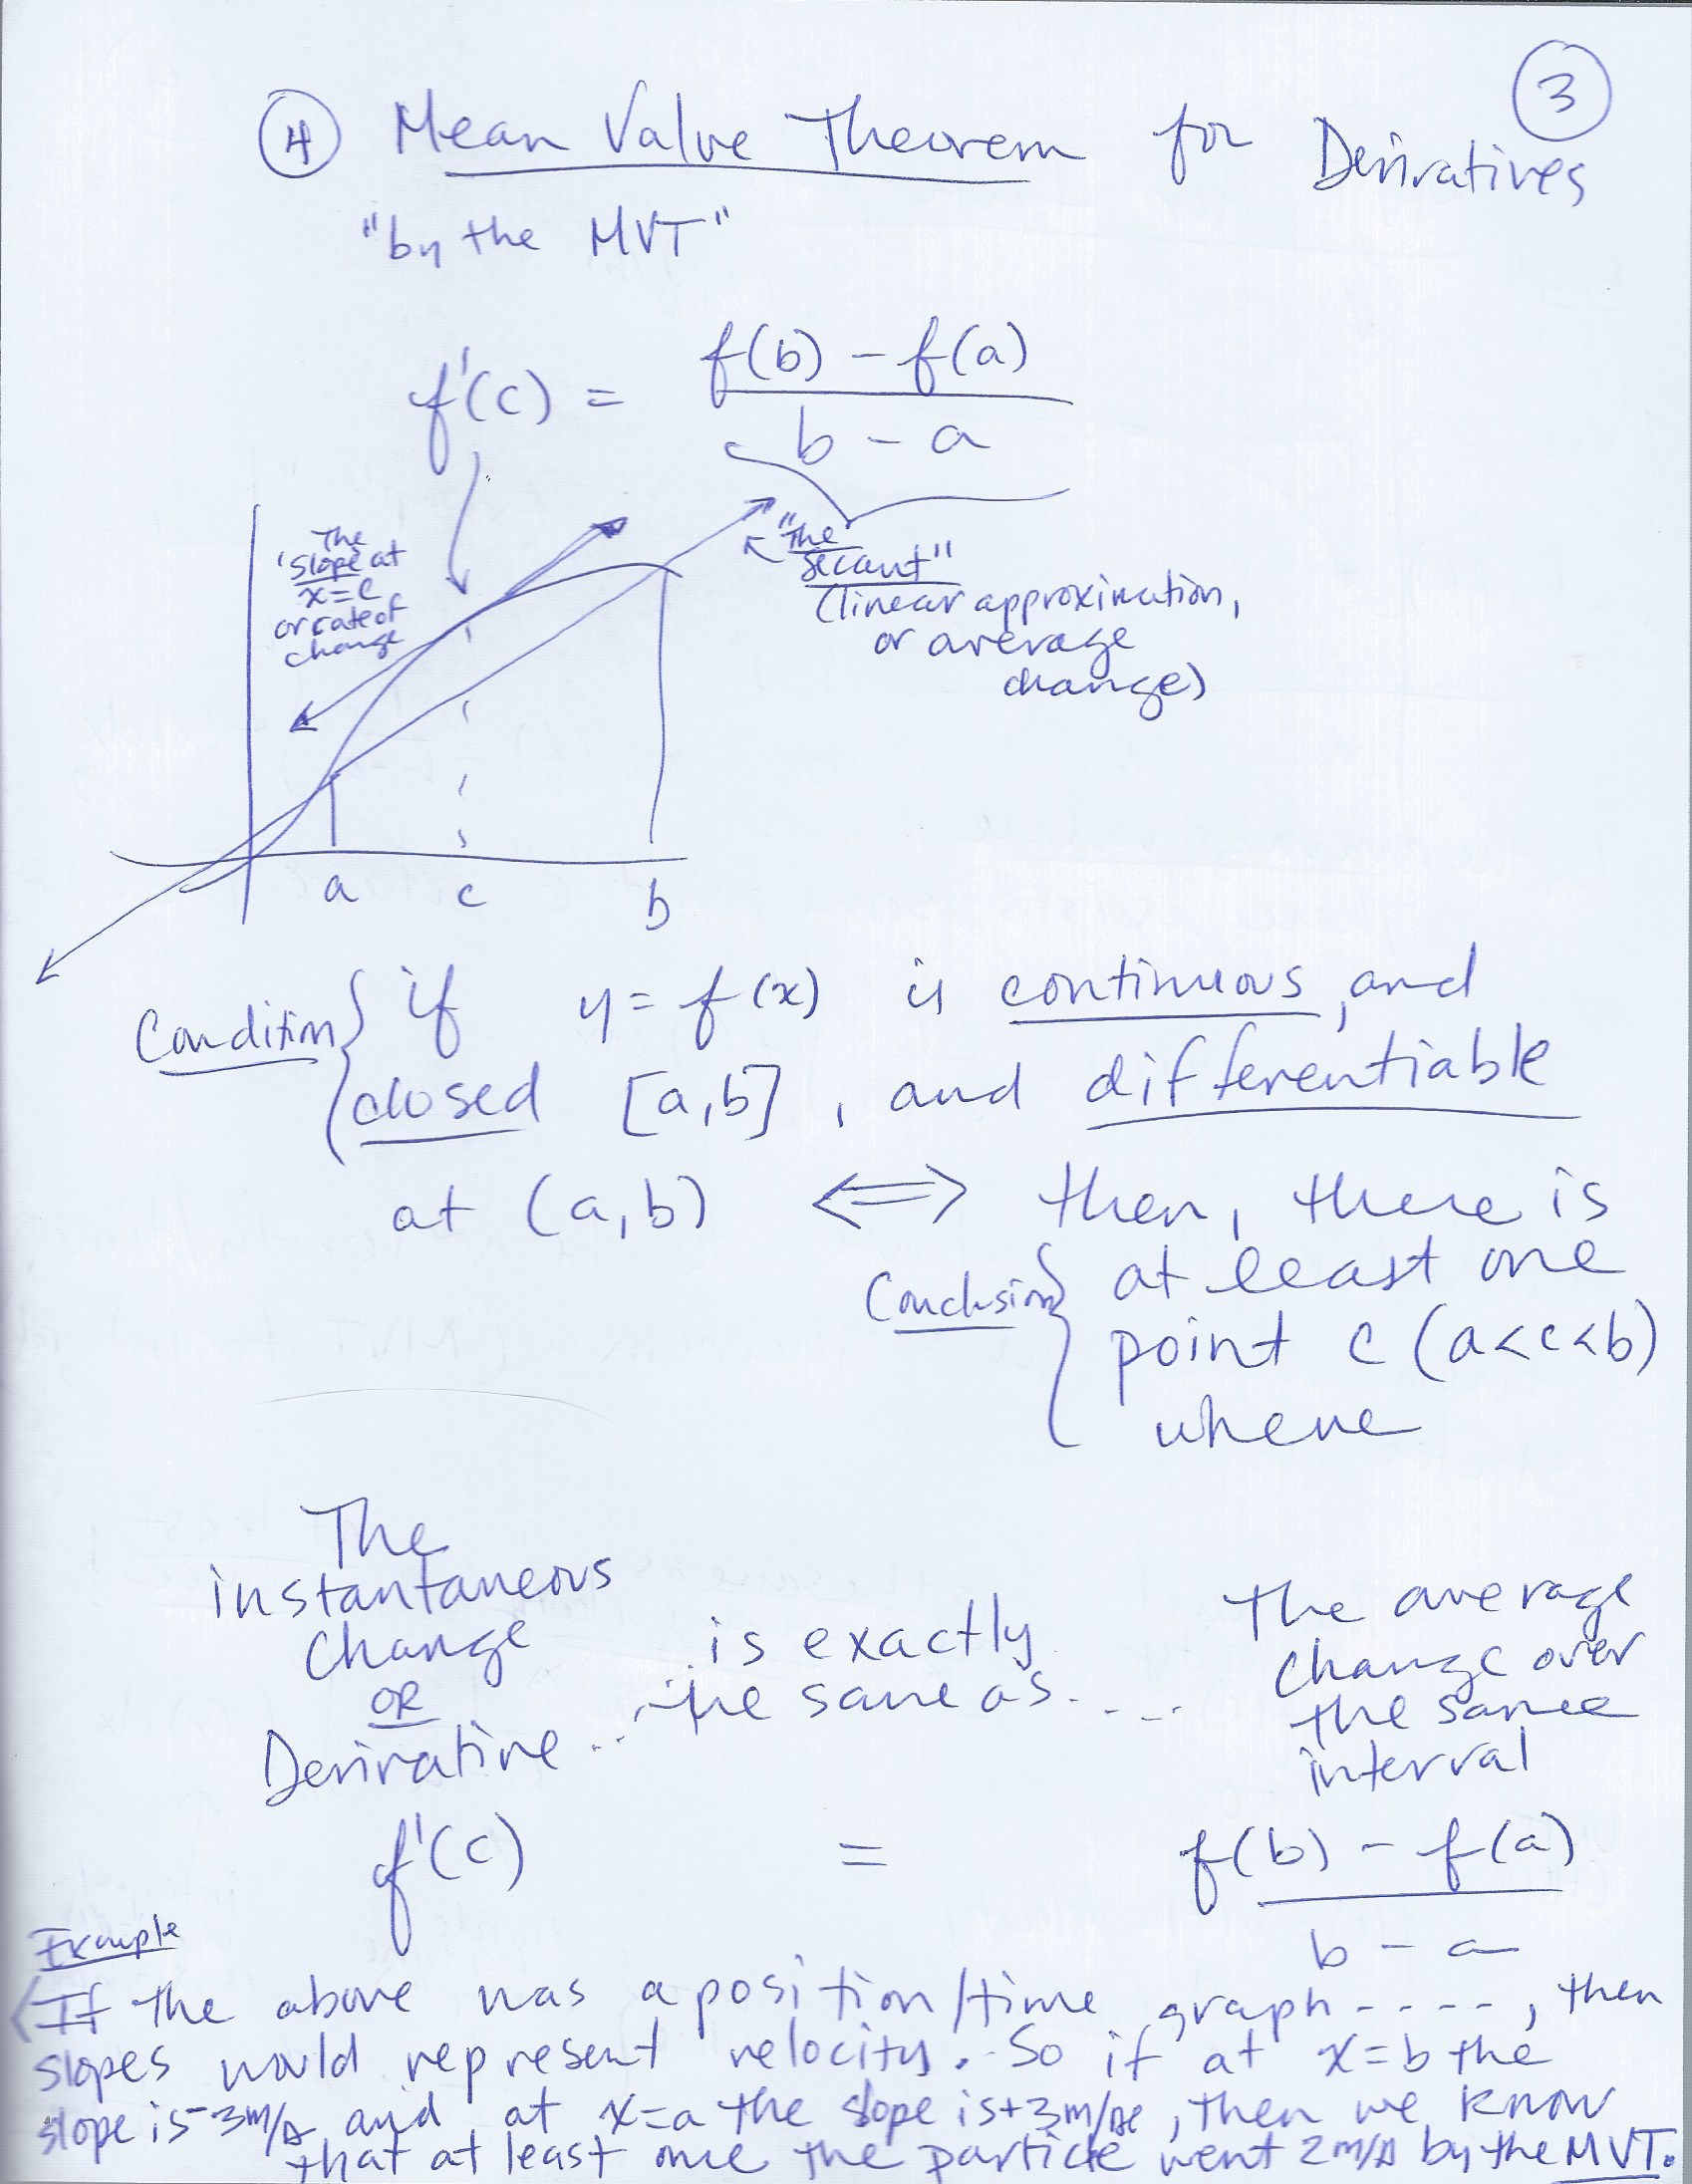 3
4 Mean Value Theorem for Derivatives
"by the MVT"
f'(c) = f(b) - f(a)
b - a
The
'slope at
x=c
or rate of
change
"the
secant"
(linear approximation,
or average
change)
a c b
Condition { if y = f(x) is continuous, and
closed [a,b], and differentiable
at (a,b) ⟺ then, there is
Conclusion { at least one
point c (a<c<b)
where
The
instantaneous
change
OR
Derivative ... is exactly
the same as ...
the average
change over
the same
interval
f'(c) = f(b) - f(a)
b - a
Example
If the above was a position/time graph ----, then
slopes would represent velocity. So if at x=b the
slope is -3m/s and at x=a the slope is +3m/s, then we know
that at least once the particle went 2m/s by the MVT.